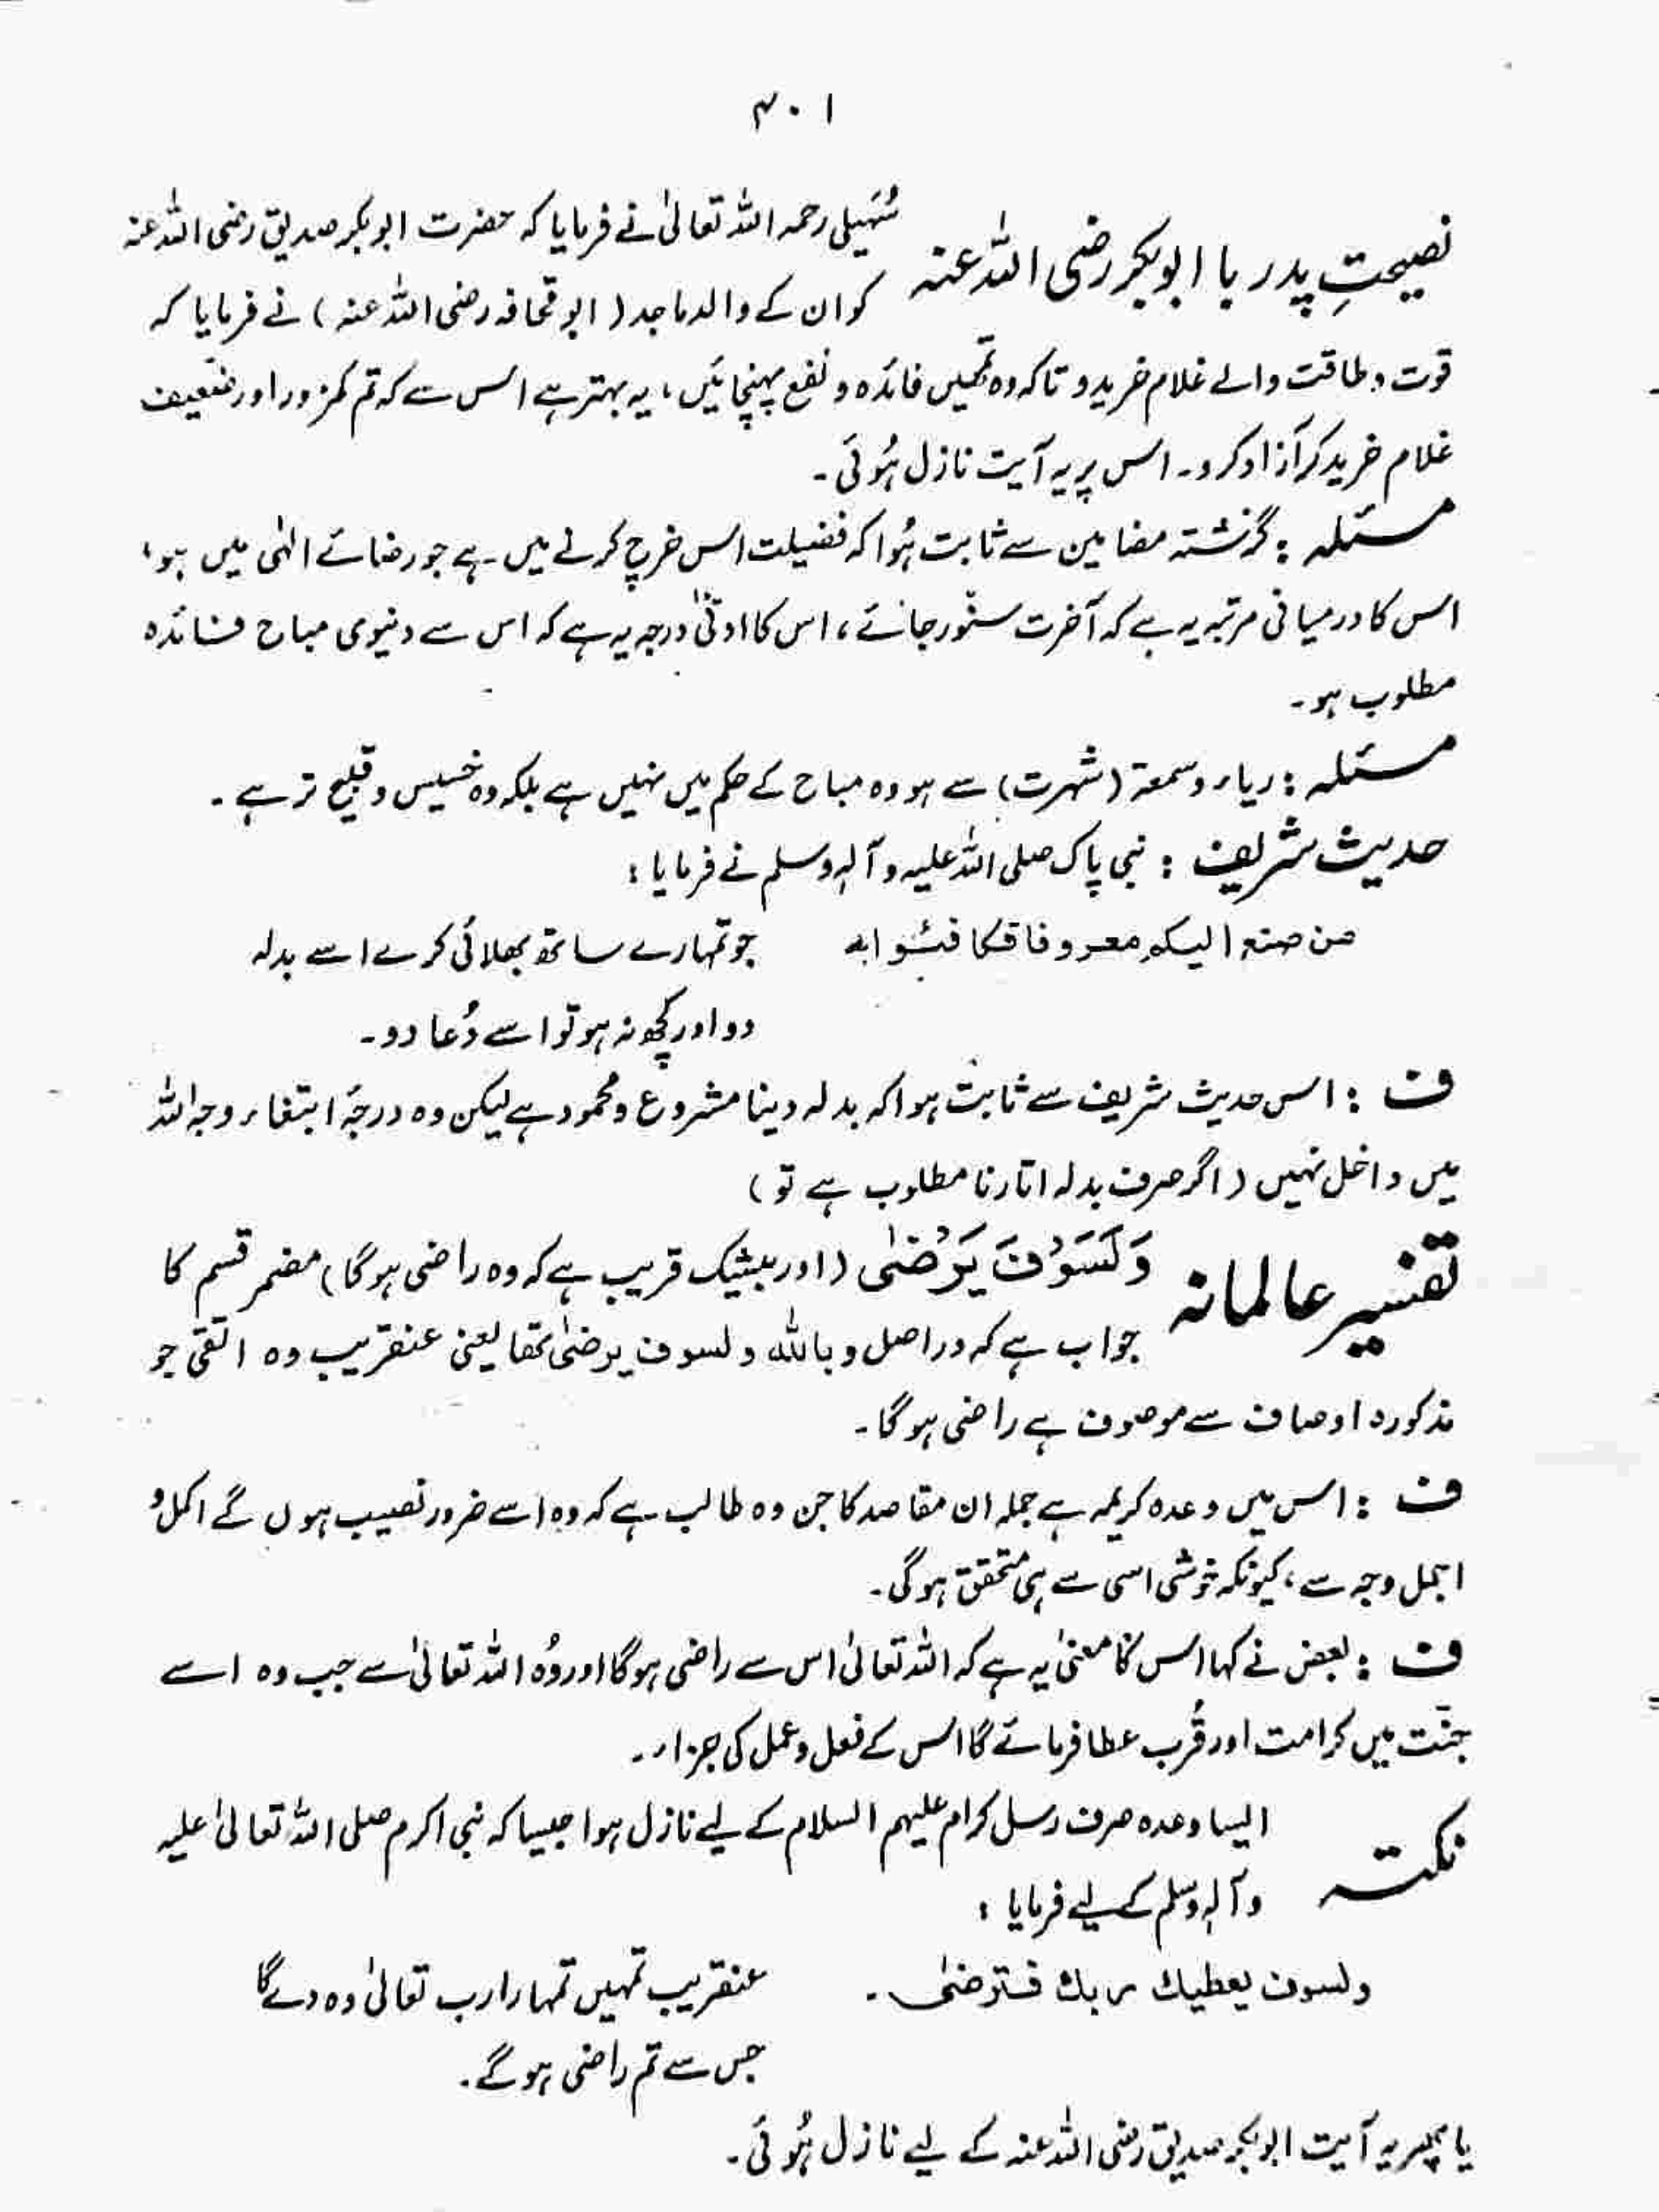 ۳۰۱
نصیحتِ پدر با ابوبکر رضی اللہ عنہ
سُہَیلی رحمہ اللہ تعالیٰ نے فرمایا کہ حضرت ابوبکر صدیق رضی اللہ عنہ
کو ان کے والد ماجد (ابو قحافہ رضی اللہ عنہ) نے فرمایا کہ
قوت و طاقت والے غلام خریدو تاکہ وہ تمہیں فائدہ و نفع پہنچائیں، یہ بہتر ہے اس سے کہ تم کمزور اور ضعیف
غلام خرید کر آزاد کرو۔ اس پر یہ آیت نازل ہُوئی۔
مسئلہ : گزشتہ مضامین سے ثابت ہُوا کہ فضیلت اس خرچ کرنے میں ہے جو رضائے الٰہی میں ہو،
اس کا درمیانی مرتبہ یہ ہے کہ آخرت سنور جائے، اس کا ادنیٰ درجہ یہ ہے کہ اس سے دنیوی مباح فائدہ
مطلوب ہو۔
مسئلہ : ریاء و سمعۃ (شہرت) سے ہو وہ مباح کے حکم میں نہیں ہے بلکہ وہ خسیس و قبیح تر ہے۔
حدیث شریف : نبی پاک صلی اللہ علیہ و آلہ وسلم نے فرمایا :
من صنع الیکم معروفا فکافئوا به
جو تمہارے ساتھ بھلائی کرے اسے بدلہ
دو اور کچھ نہ ہو تو اسے دُعا دو۔
ف : اس حدیث شریف سے ثابت ہوا کہ بدلہ دینا مشروع و محمود ہے لیکن وہ درجۂ ابتغاء وجہ اللہ
میں داخل نہیں (اگر صرف بدلہ اتارنا مطلوب ہے تو)
تفسیر عالمانہ
وَلَسَوْفَ يَرْضٰى (اور بیشک قریب ہے کہ وہ راضی ہوگا) مضمر قسم کا
جواب ہے کہ دراصل وبالله ولسوف یرضیٰ تھا یعنی عنقریب وہ اتقی جو
مذکورہ اوصاف سے موصوف ہے راضی ہوگا۔
ف : اس میں وعدہ کریمہ ہے جملہ ان مقاصد کا جن وہ طالب ہے کہ وہ اسے ضرور نصیب ہوں گے اکمل و
اجمل وجہ سے، کیونکہ خوشی اسی سے ہی متحقق ہوگی۔
ف : بعض نے کہا اس کا معنیٰ یہ ہے کہ اللہ تعالیٰ اس سے راضی ہوگا اور وُہ اللہ تعالیٰ سے جب وہ اسے
جنّت میں کرامت اور قُرب عطا فرمائے گا اس کے فعل و عمل کی جزاء۔
نکتہ
ایسا وعدہ صرف رسل کرام علیہم السلام کے لیے نازل ہوا جیسا کہ نبی اکرم صلی اللہ تعالیٰ علیہ
و آلہ وسلم کے لیے فرمایا :
ولسوف یعطیك ربك فترضیٰ۔
عنقریب تمہیں تمہارا رب تعالیٰ وہ دے گا
جس سے تم راضی ہوگے۔
یا پھر یہ آیت ابوبکر صدیق رضی اللہ عنہ کے لیے نازل ہُوئی۔